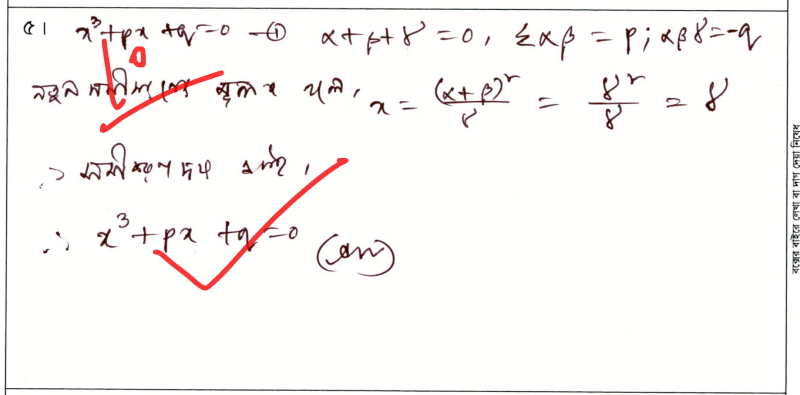 ৫। x³+px+q=0 —① α+β+γ=0, Σαβ = p; αβγ=-q
নতুন সমীকরণের মূল x হলে, x = (α+β)²/γ = γ²/γ = γ
∴ সমীকরণ
∴ x³+px+q=0 (Ans)
বক্সের বাইরে লেখা বা দাগ দেয়া নিষেধ